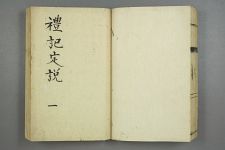 禮記定説
一